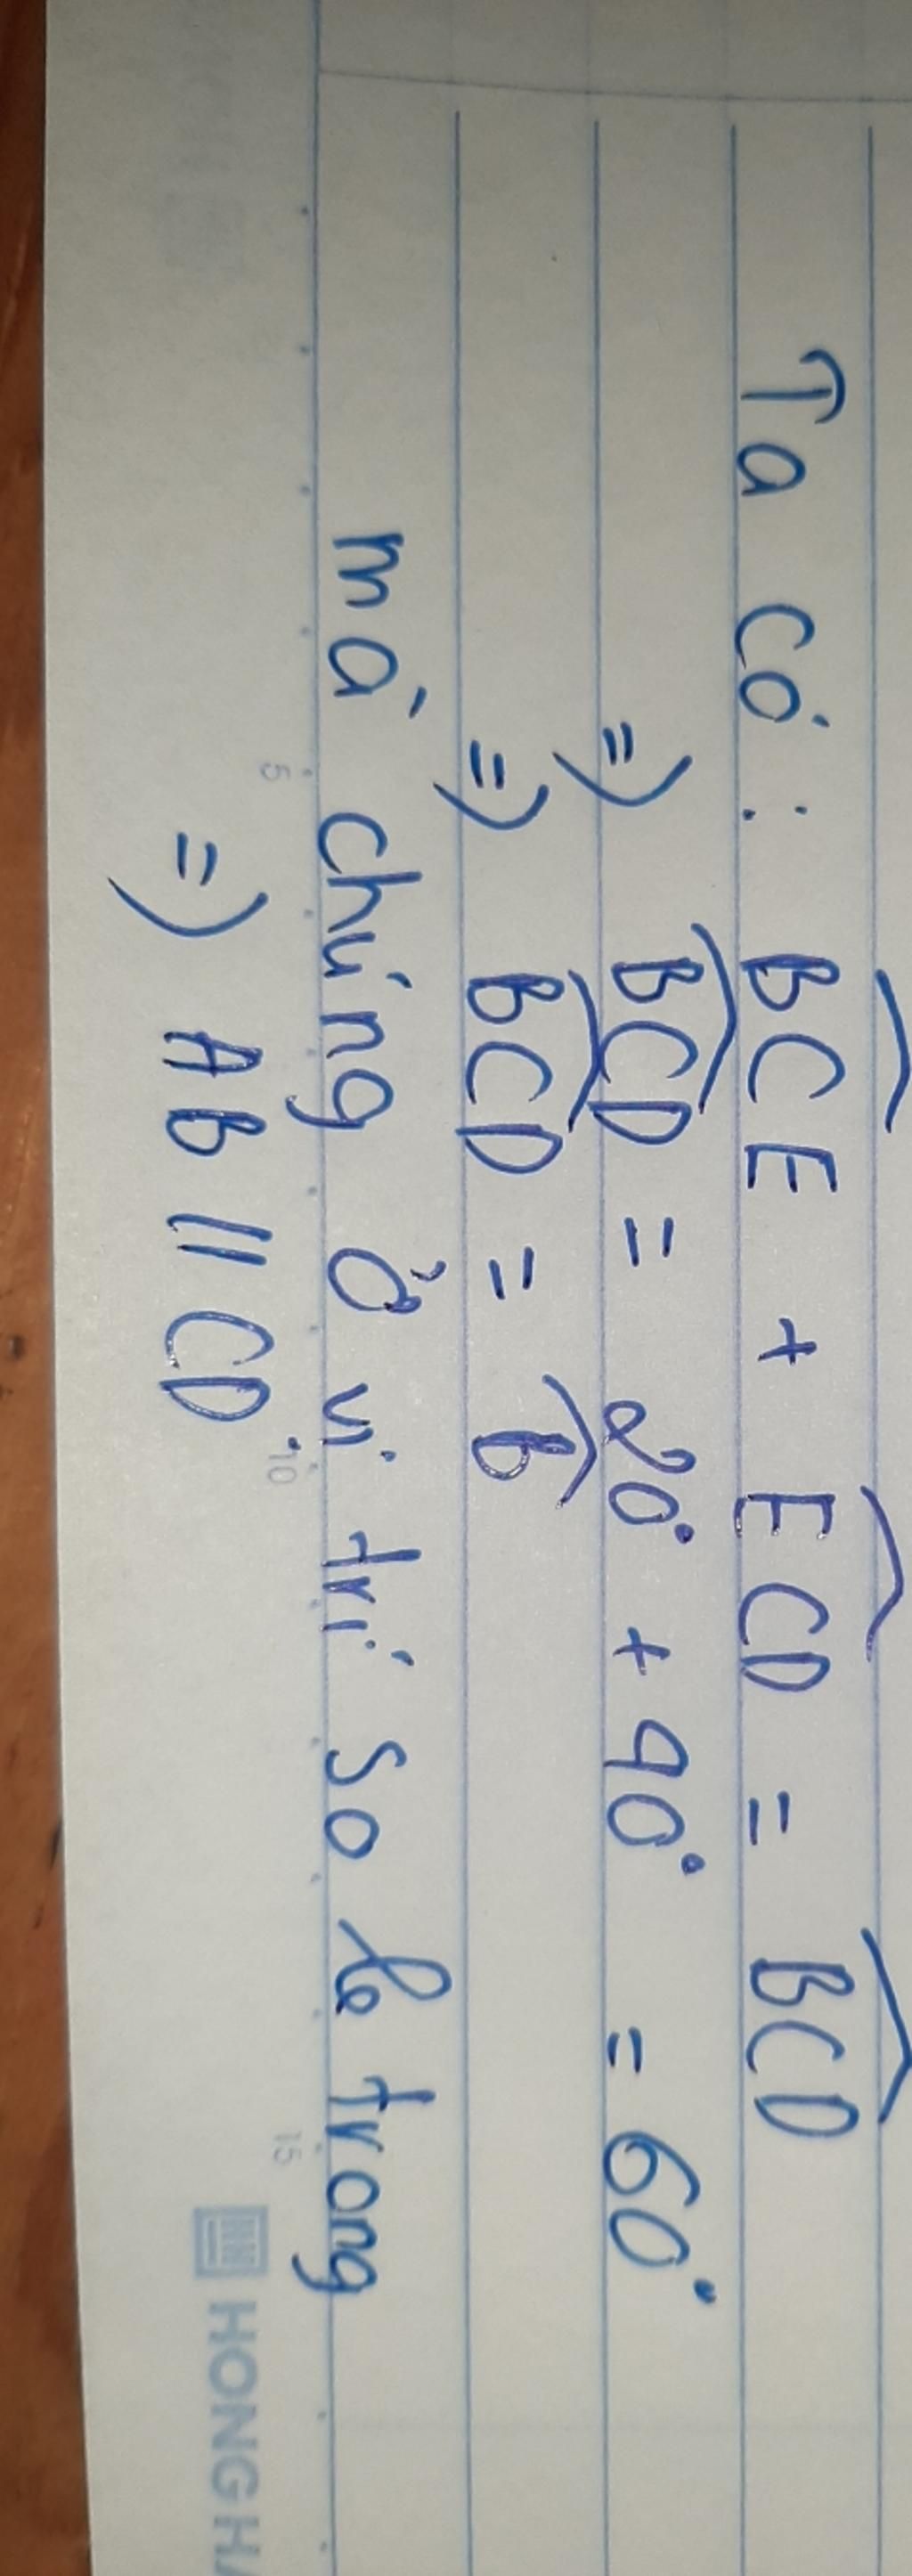 Ta có: BCE + ECD = BCD
=) BCD = 20° + 90° = 60°
=) BCD = B
mà chúng ở vị trí so le trong
=) AB // CD
5 10 15
HONG HA